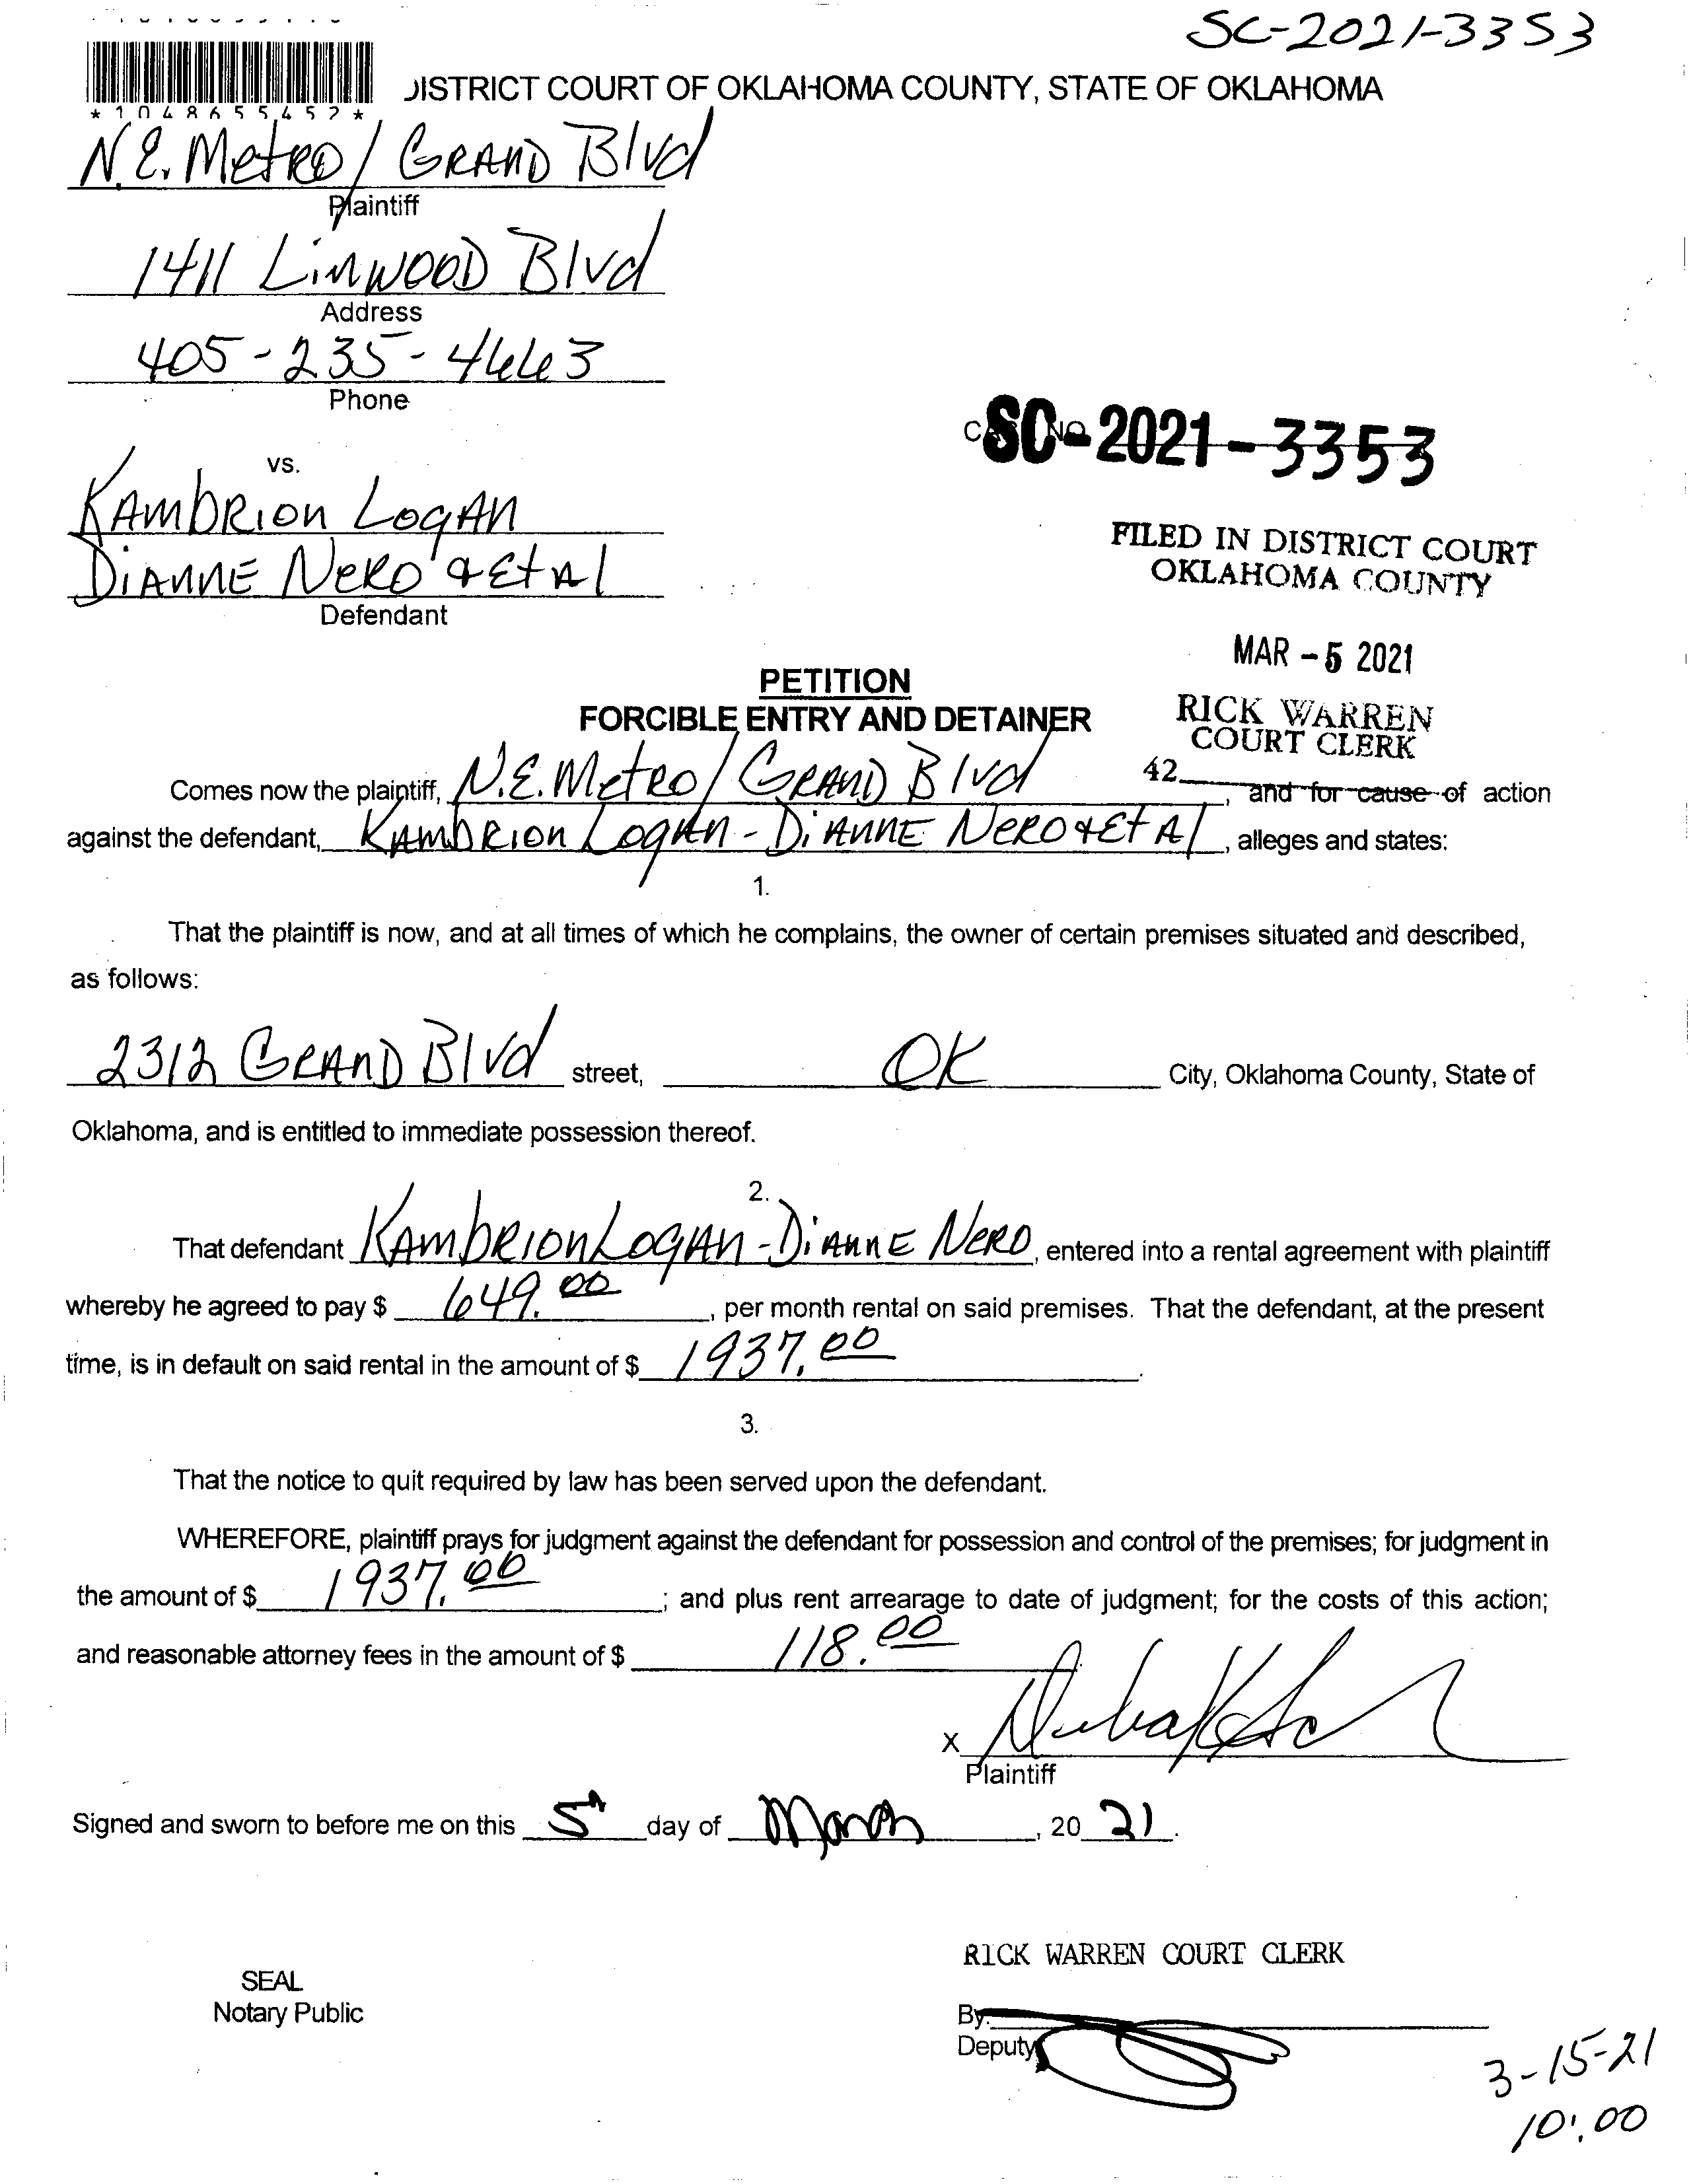 SC-2021-3353
DISTRICT COURT OF OKLAHOMA COUNTY, STATE OF OKLAHOMA
*1048655452*
N.E. Metro / GRAND Blvd
Plaintiff
1411 LinwOOD Blvd
Address
405-235-4663
Phone
vs.
SC-2021-3353
KAmbRion LogAn
DiAnnE NeRo & Et Al
Defendant
FILED IN DISTRICT COURT
OKLAHOMA COUNTY
MAR -5 2021
RICK WARREN
COURT CLERK
42
PETITION
FORCIBLE ENTRY AND DETAINER
Comes now the plaintiff, N.E. Metro / GRAND Blvd, and for cause of action
against the defendant, KAmbRion LogAn - DiAnnE NeRo & Et Al, alleges and states:
1.
That the plaintiff is now, and at all times of which he complains, the owner of certain premises situated and described,
as follows:
2312 GRAND Blvd street, OK City, Oklahoma County, State of
Oklahoma, and is entitled to immediate possession thereof.
2.
That defendant KAmbRion LogAn - DiAnnE NeRO, entered into a rental agreement with plaintiff
whereby he agreed to pay $ 649.00, per month rental on said premises. That the defendant, at the present
time, is in default on said rental in the amount of $ 1937.00.
3.
That the notice to quit required by law has been served upon the defendant.
WHEREFORE, plaintiff prays for judgment against the defendant for possession and control of the premises; for judgment in
the amount of $ 1937.00; and plus rent arrearage to date of judgment; for the costs of this action;
and reasonable attorney fees in the amount of $ 118.00
X
Plaintiff
Signed and sworn to before me on this 5th day of March, 2021.
RICK WARREN COURT CLERK
SEAL
Notary Public
By:
Deputy
3-15-21
10:00